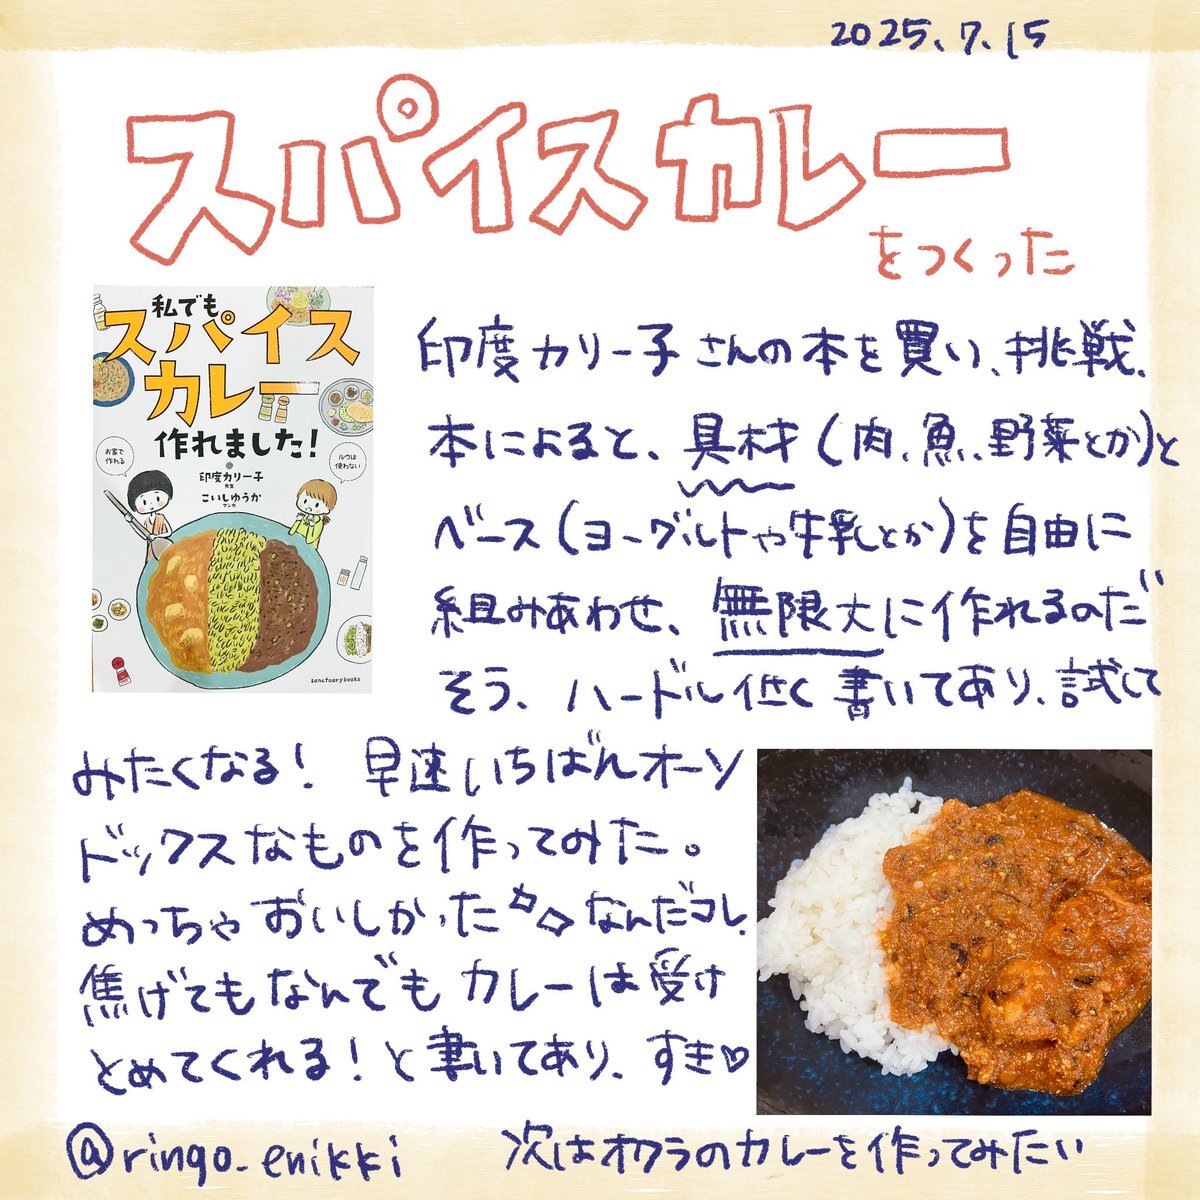 2025.7.15
スパイスカレー
をつくった
私でも
スパイス
カレー
作れました!
お家で
作れる
ルウは
使わない
印度カリー子
先生
こいしゆうか
マンガ
sanctuarybooks
印度カリー子さんの本を買い、挑戦。
本によると、具材(肉、魚、野菜とか)と
ベース(ヨーグルトや牛乳とか)を自由に
組みあわせ、無限大に作れるのだ
そう、ハードル低く書いてあり、試して
みたくなる! 早速いちばんオーソ
ドックスなものを作ってみた。
めっちゃおいしかった なんだコレ、
焦げてもなんでもカレーは受け
とめてくれる!と書いてあり、すき♡
@ringo_enikki
次はオクラのカレーを作ってみたい